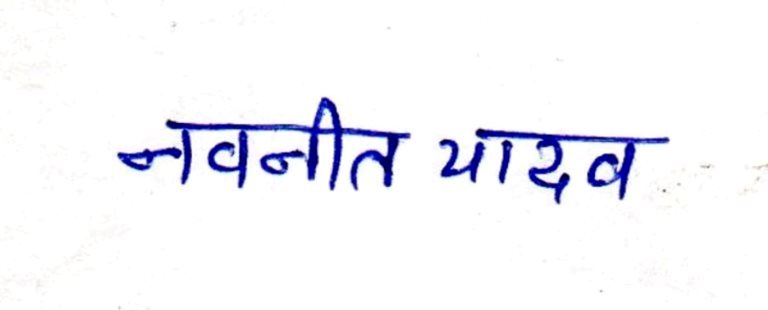 नवनीत यादव